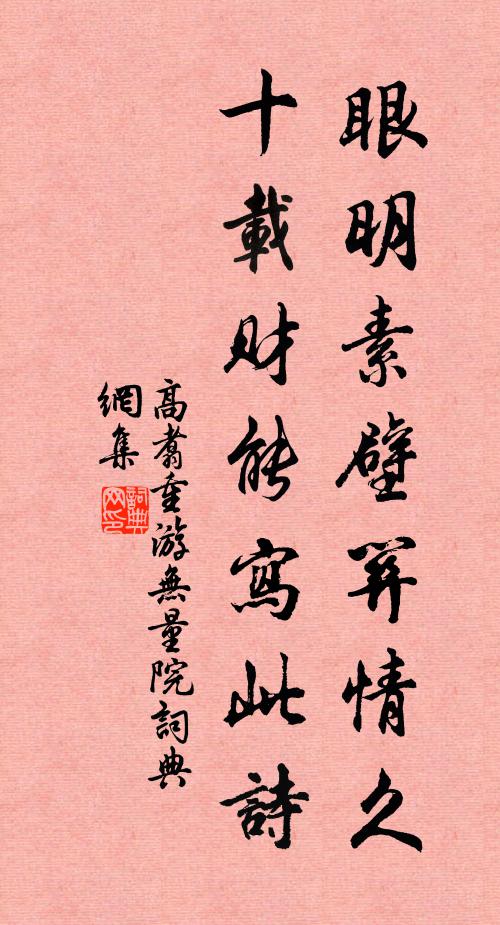 眼明素壁情久
十載財能寫此詩
高翥重游無量院詞典
網集
詞典
网印